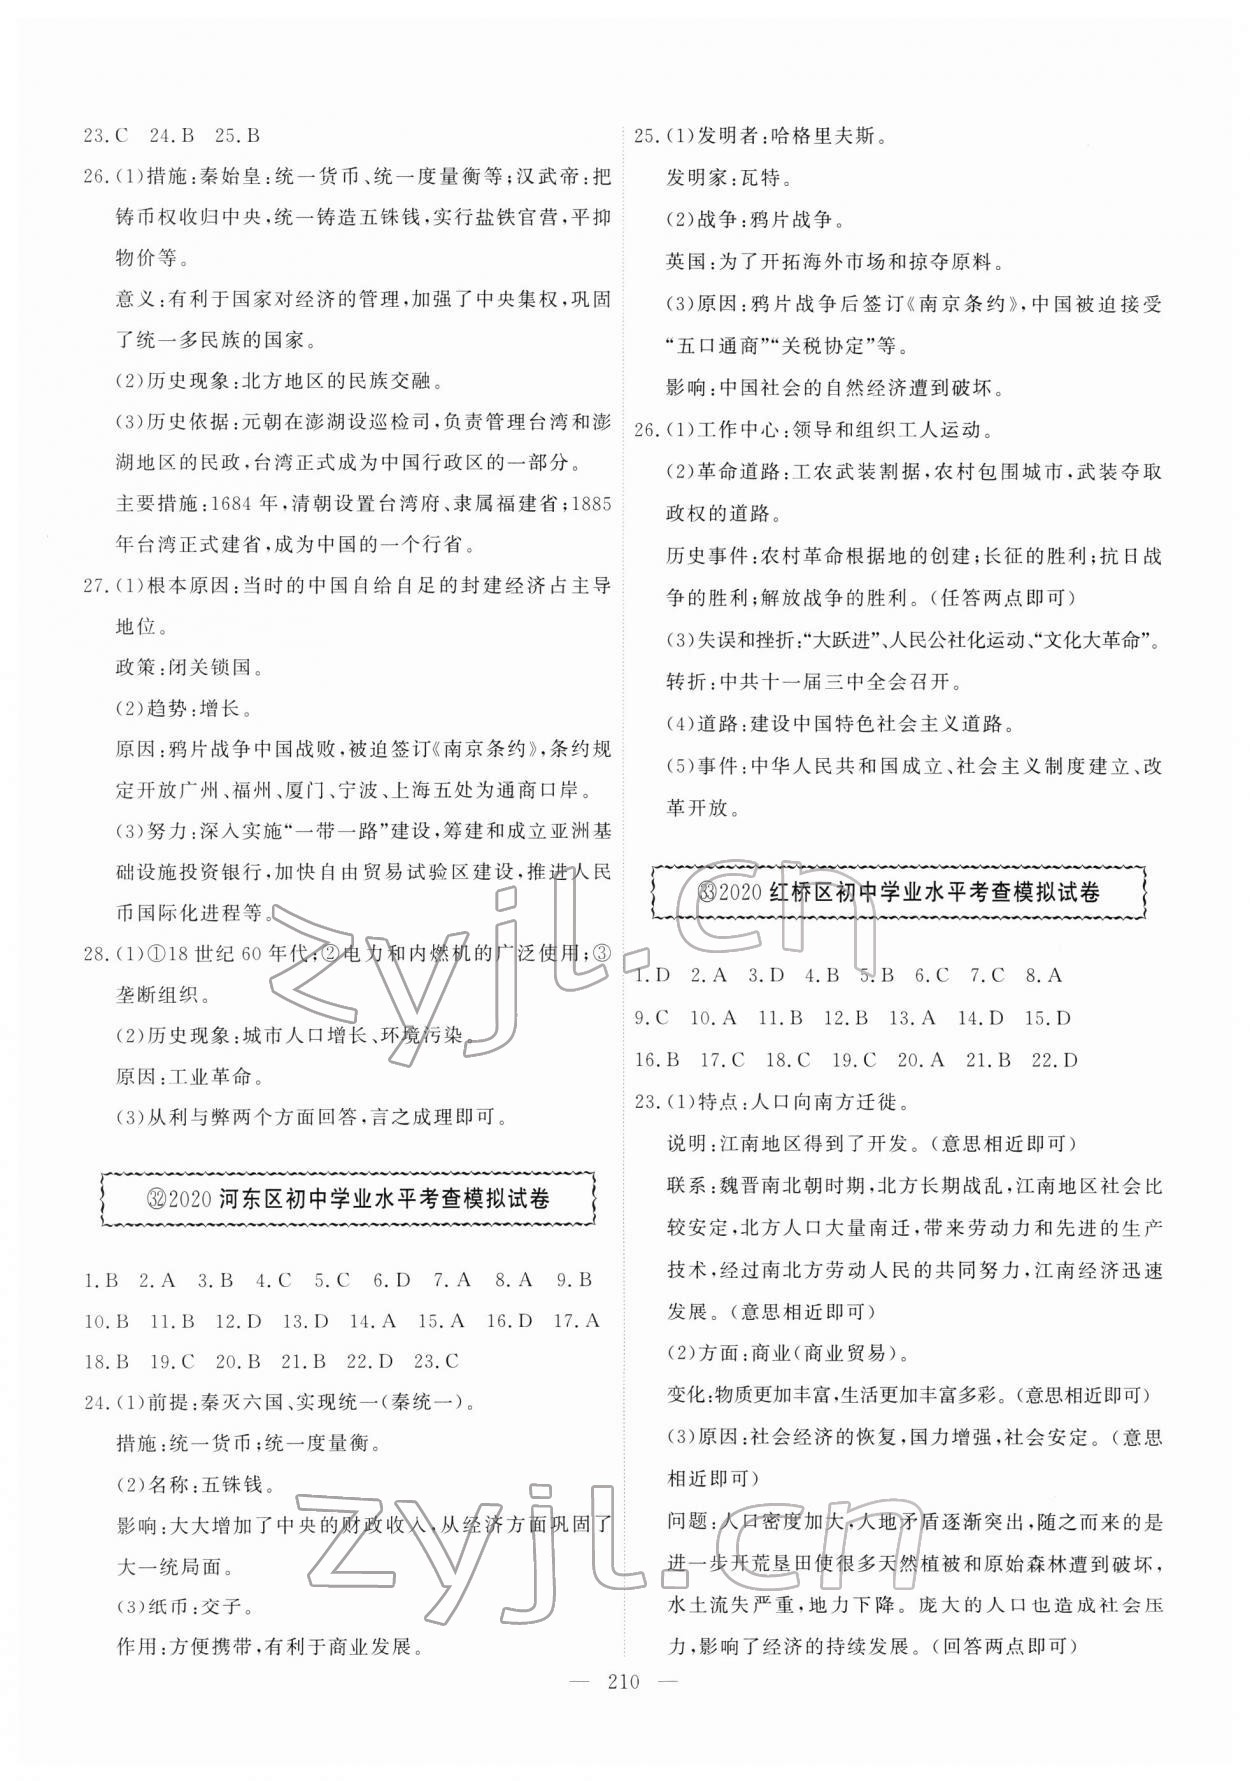 23.C 24.B 25.B
26.(1)措施:秦始皇:统一货币、统一度量衡等;汉武帝:把
铸币权收归中央,统一铸造五铢钱,实行盐铁官营,平抑
物价等。
意义:有利于国家对经济的管理,加强了中央集权,巩固
了统一多民族的国家。
(2)历史现象:北方地区的民族交融。
(3)历史依据:元朝在澎湖设巡检司,负责管理台湾和澎
湖地区的民政,台湾正式成为中国行政区的一部分。
主要措施:1684年,清朝设置台湾府、隶属福建省;1885
年台湾正式建省,成为中国的一个行省。
27.(1)根本原因:当时的中国自给自足的封建经济占主导
地位。
政策:闭关锁国。
(2)趋势:增长。
原因:鸦片战争中国战败,被迫签订《南京条约》,条约规
定开放广州、福州、厦门、宁波、上海五处为通商口岸。
(3)努力:深入实施“一带一路”建设,筹建和成立亚洲基
础设施投资银行,加快自由贸易试验区建设,推进人民
币国际化进程等。
28.(1)①18世纪60年代;②电力和内燃机的广泛使用;③
垄断组织。
(2)历史现象:城市人口增长、环境污染。
原因:工业革命。
(3)从利与弊两个方面回答,言之成理即可。
㉜2020 河东区初中学业水平考查模拟试卷
1.B 2.A 3.B 4.C 5.C 6.D 7.A 8.A 9.B
10.B 11.B 12.D 13.D 14.A 15.A 16.D 17.A
18.B 19.C 20.B 21.B 22.D 23.C
24.(1)前提:秦灭六国、实现统一(秦统一)。
措施:统一货币;统一度量衡。
(2)名称:五铢钱。
影响:大大增加了中央的财政收入,从经济方面巩固了
大一统局面。
(3)纸币:交子。
作用:方便携带,有利于商业发展。
25.(1)发明者:哈格里夫斯。
发明家:瓦特。
(2)战争:鸦片战争。
英国:为了开拓海外市场和掠夺原料。
(3)原因:鸦片战争后签订《南京条约》,中国被迫接受
“五口通商”“关税协定”等。
影响:中国社会的自然经济遭到破坏。
26.(1)工作中心:领导和组织工人运动。
(2)革命道路:工农武装割据,农村包围城市,武装夺取
政权的道路。
历史事件:农村革命根据地的创建;长征的胜利;抗日战
争的胜利;解放战争的胜利。(任答两点即可)
(3)失误和挫折:“大跃进”、人民公社化运动、“文化大革命”。
转折:中共十一届三中全会召开。
(4)道路:建设中国特色社会主义道路。
(5)事件:中华人民共和国成立、社会主义制度建立、改
革开放。
㉝2020 红桥区初中学业水平考查模拟试卷
1.D 2.A 3.D 4.B 5.B 6.C 7.C 8.A
9.C 10.A 11.B 12.B 13.A 14.D 15.D
16.B 17.C 18.C 19.C 20.A 21.B 22.D
23.(1)特点:人口向南方迁徙。
说明:江南地区得到了开发。(意思相近即可)
联系:魏晋南北朝时期,北方长期战乱,江南地区社会比
较安定,北方人口大量南迁,带来劳动力和先进的生产
技术,经过南北方劳动人民的共同努力,江南经济迅速
发展。(意思相近即可)
(2)方面:商业(商业贸易)。
变化:物质更加丰富,生活更加丰富多彩。(意思相近即可)
(3)原因:社会经济的恢复,国力增强,社会安定。(意思
相近即可)
问题:人口密度加大,人地矛盾逐渐突出,随之而来的是
进一步开荒垦田使很多天然植被和原始森林遭到破坏,
水土流失严重,地力下降。庞大的人口也造成社会压
力,影响了经济的持续发展。(回答两点即可)
— 210 —
zyjl.cn
zyjl.cn